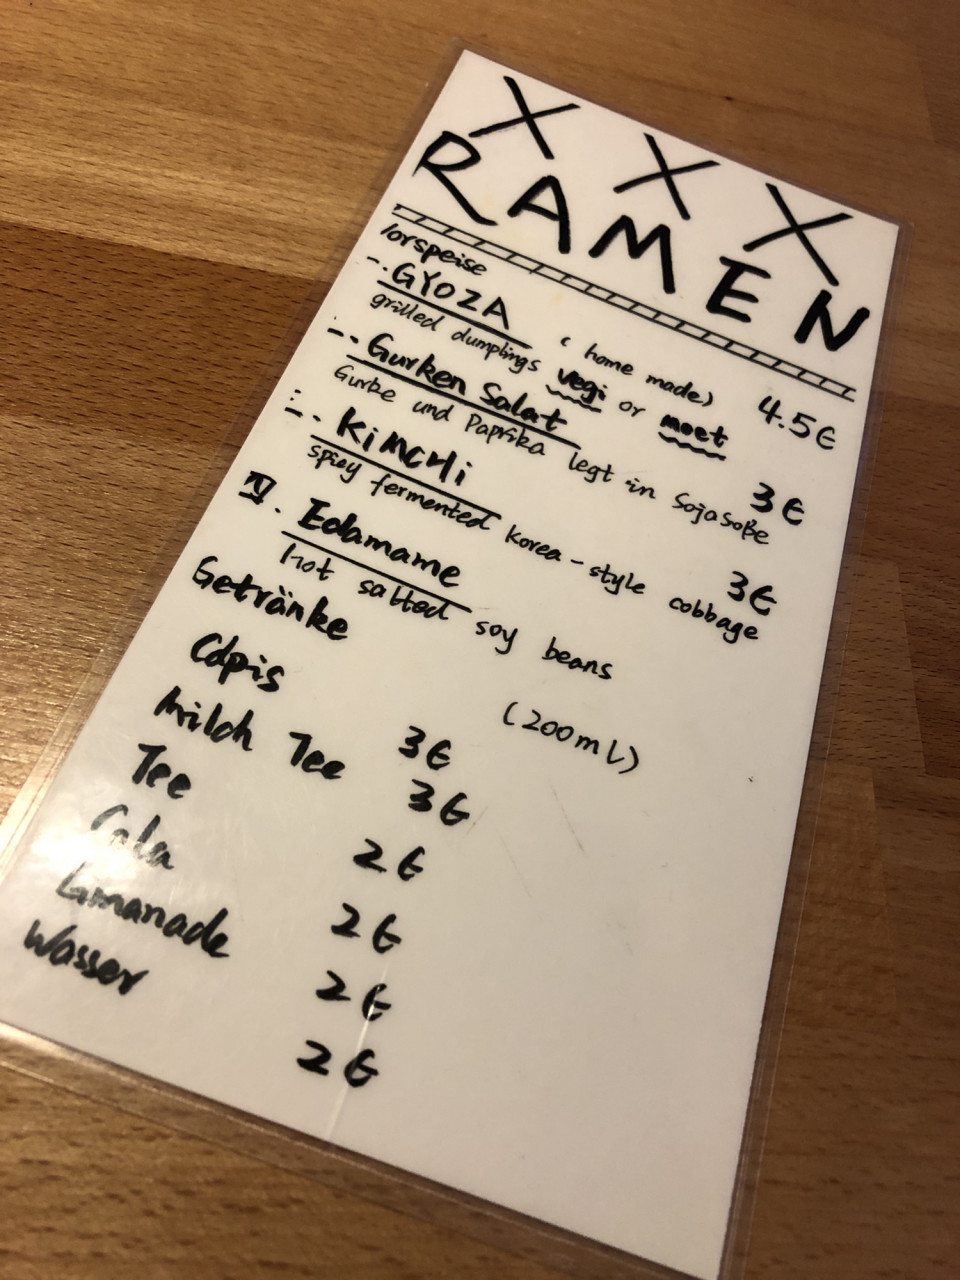 X X X
RAMEN
Vorspeise
一. GYOZA ( home made) 4.5€
grilled dumplings vegi or meet
二. Gurken Salat 3€
Gurke und Paprika legt in Sojasoße
三. KiMCHi 3€
spicy fermented korea-style cobbage
Edamame
hot salted soy beans
Getränke (200ml)
Calpis 3€
Milch Tee 3€
Tee 2€
Cola 2€
Limanade 2€
Wasser 2€